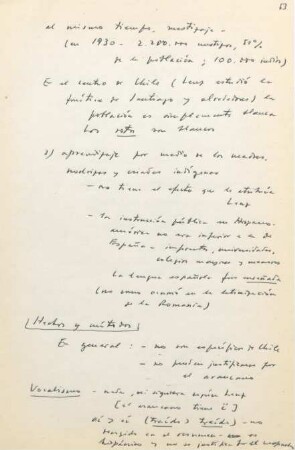 53
al mismo tiempo, mestizaje -
(en 1930 - 2.200.000 mestizos, 50%
de la población; 100.000 indios)
En el centro de Chile (Lenz estudió la
fonética de Santiago y alrededores) la
población es simplemente blanca
Los rotos son blancos
2) aprendizaje por medio de las madres,
nodrizas y criadas indígenas
- no tiene el efecto que le atribuía
Lenz
- la instrucción pública en Hispano-
américa no era inferior a la de
España - imprentas, universidades,
colegios mayores y menores
La lengua española fue enseñada
(no como ocurrió en la latinización
de la Romania)
(Hechos y métodos)
En general: - no son específicos de Chile
- no pueden justificarse por
el araucano
Vocalismo - ni siquiera según Lenz
(el araucano tiene
aí > ái (traído > tráido) - no
- no es
hispánico y no se justifica por el araucano